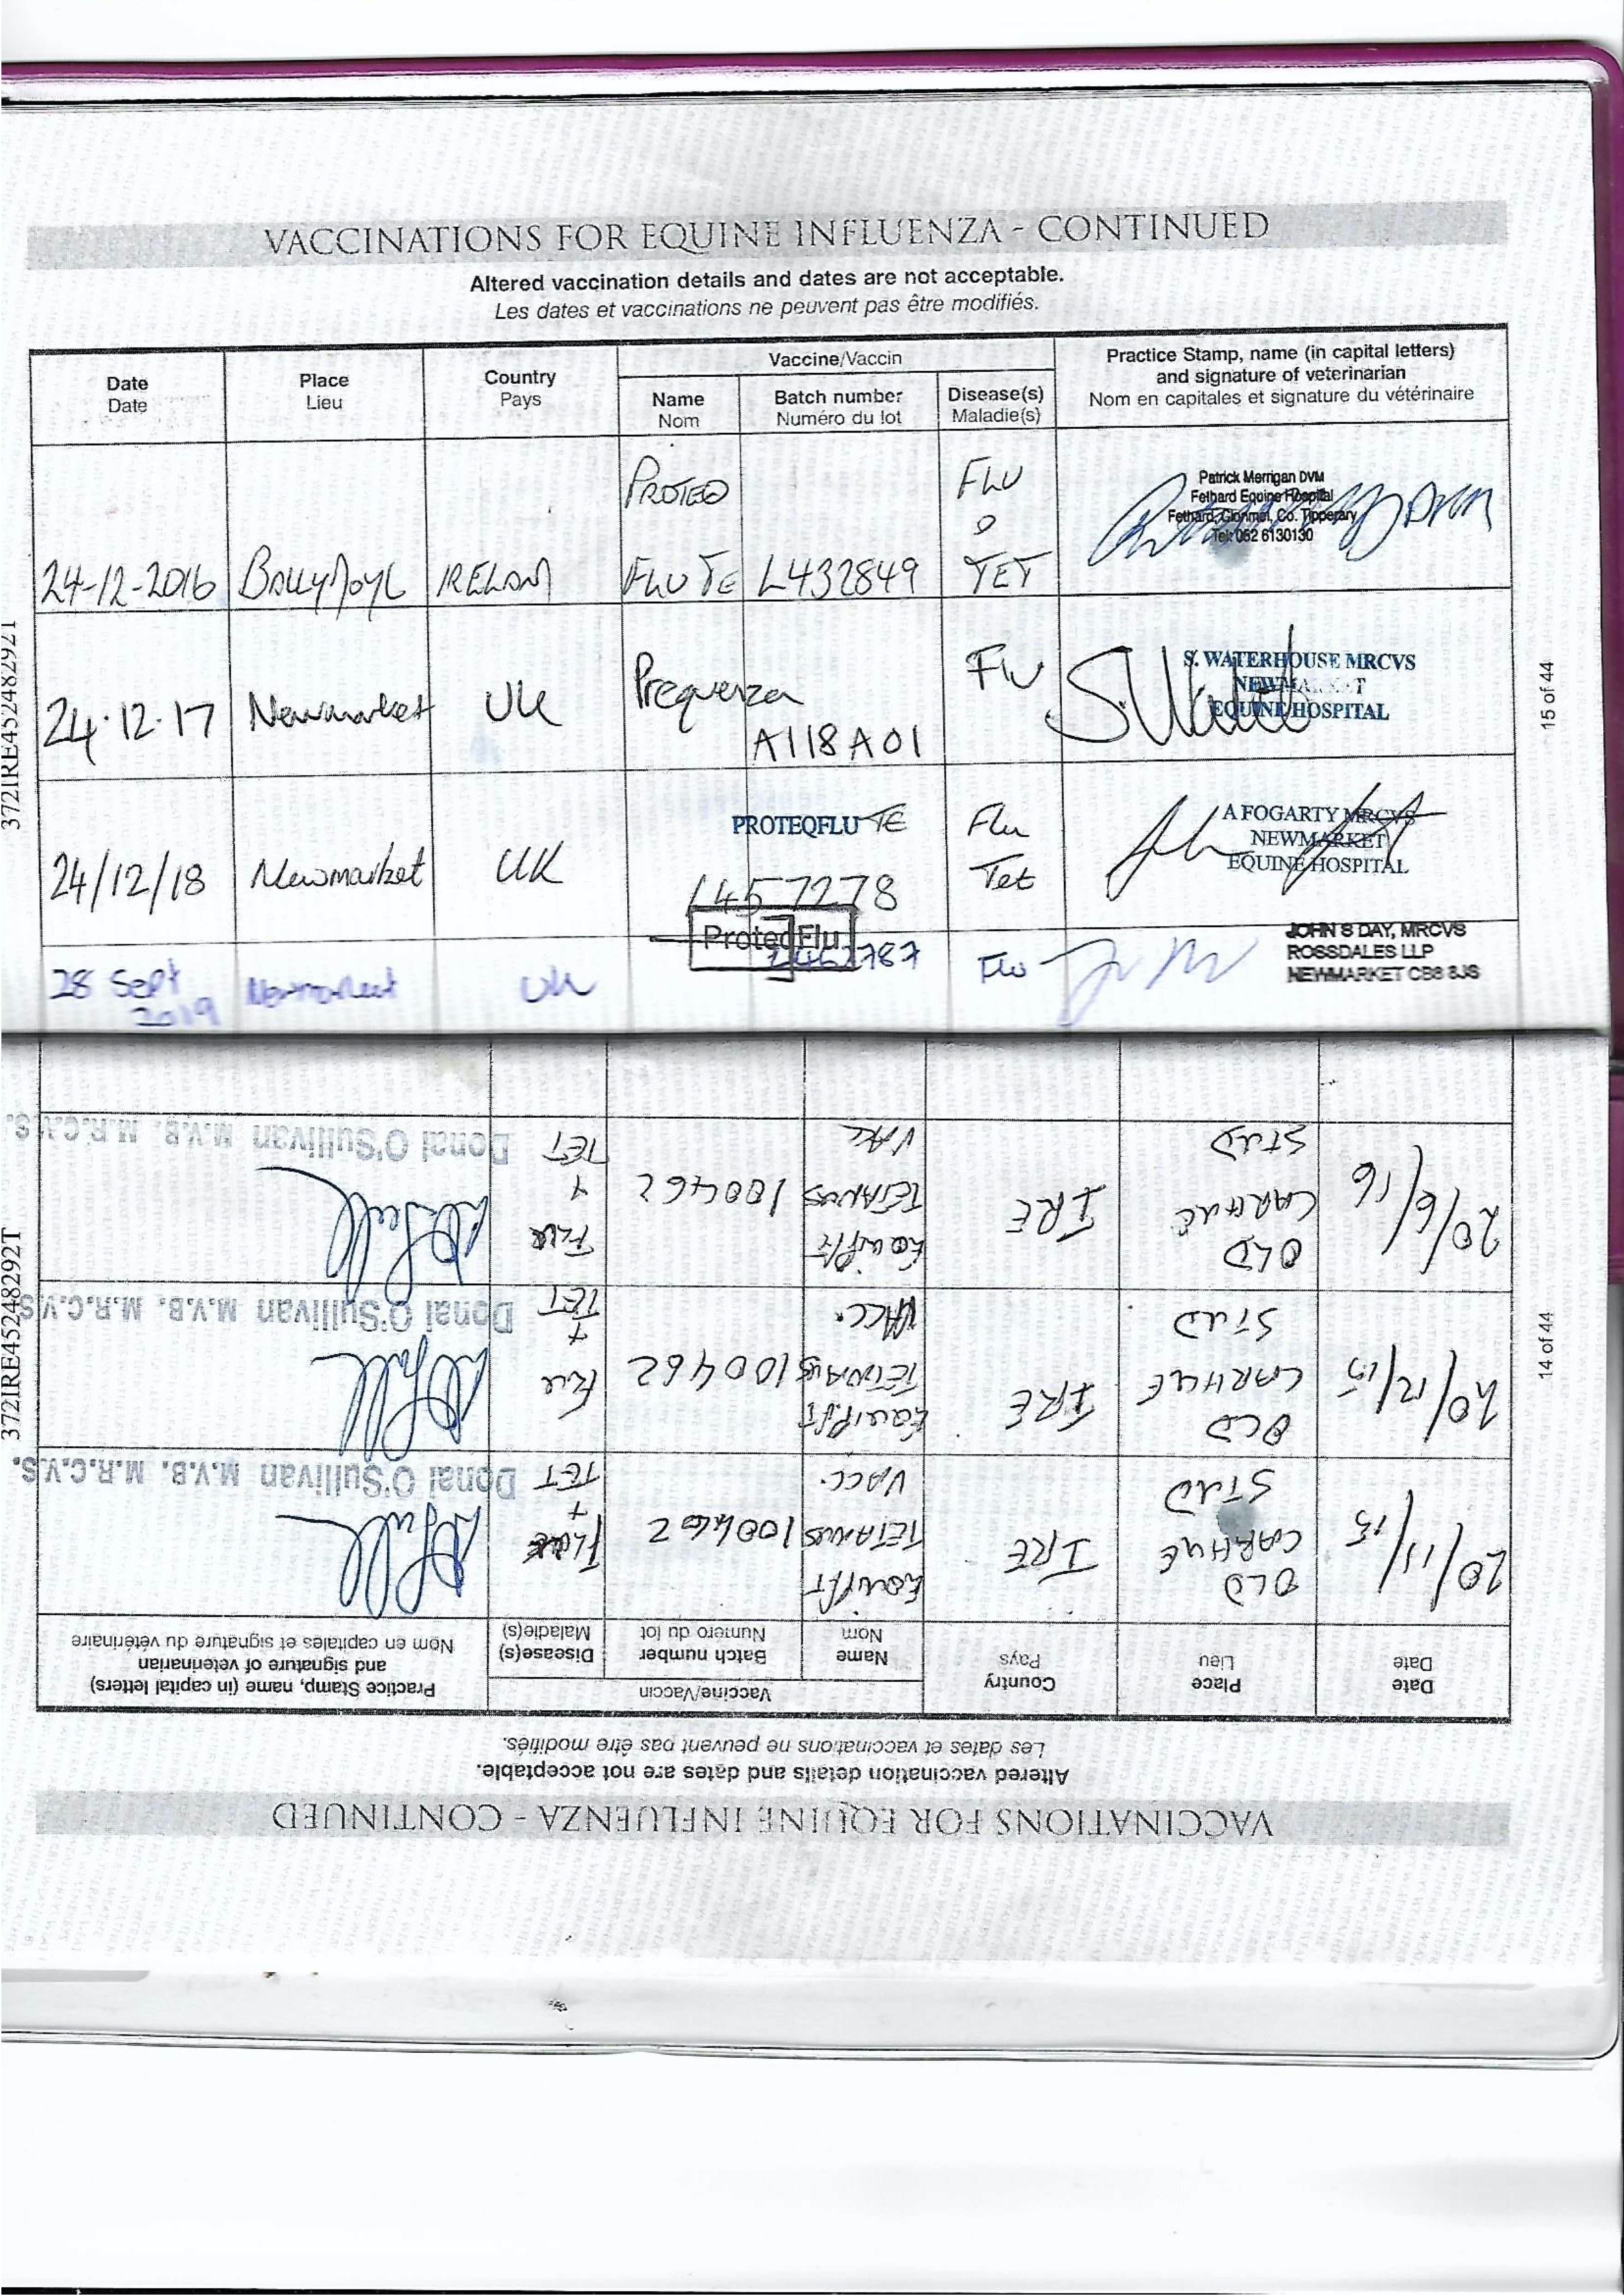 VACCINATIONS FOR EQUINE INFLUENZA - CONTINUED
Altered vaccination details and dates are not acceptable.
Les dates et vaccinations ne peuvent pas être modifiés.
Date Date
Place Lieu
Country Pays
Vaccine/Vaccin
Name Nom
Batch number Numéro du lot
Disease(s) Maladie(s)
Practice Stamp, name (in capital letters)
and signature of veterinarian
Nom en capitales et signature du vétérinaire
PROTEQ FLU
Patrick Merrigan DVM
Fethard Equine Hospital
Fethard, Clonmel, Co. Tipperary
Tel: 052 6130130
DVM
24-12-2016 IRELAND FLU TE L432849 TET
24.12.17 Newmarket UK Prequenza A118A01 Flu
S. WATERHOUSE MRCVS
NEWMARKET
EQUINE HOSPITAL
24/12/18 Newmarket UK PROTEQFLU TE L457278 Flu Tet
A FOGARTY MRCVS
NEWMARKET
EQUINE HOSPITAL
28 Sept 2019 Newmarket UK ProteqFlu Flu
JOHN S DAY, MRCVS
ROSSDALES LLP
NEWMARKET CB8 8JS
372IRE45248292T
15 of 44
VACCINATIONS FOR EQUINE INFLUENZA - CONTINUED
Altered vaccination details and dates are not acceptable.
Les dates et vaccinations ne peuvent pas être modifiés.
Date Date
Place Lieu
Country Pays
Vaccine/Vaccin
Name Nom
Batch number Numéro du lot
Disease(s) Maladie(s)
Practice Stamp, name (in capital letters)
and signature of veterinarian
Nom en capitales et signature du vétérinaire
20/11/15 OLD CARHUE STUD IRE TETANUS VACC. 100462 + TET
Donal O'Sullivan M.V.B. M.R.C.V.S.
20/12/15 OLD CARHUE STUD IRE VACC. 100462 Flu + TET
Donal O'Sullivan M.V.B. M.R.C.V.S.
20/6/16 OLD CARHUE STUD IRE TETANUS VACC 100462 Flu + TET
Donal O'Sullivan M.V.B. M.R.C.V.S.
372IRE45248292T
14 of 44